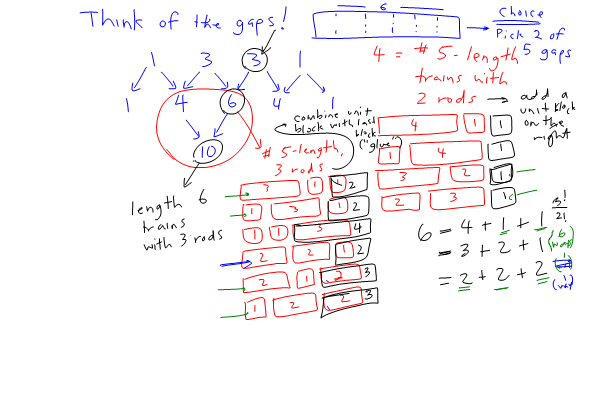 Think of the gaps!
6
choice
Pick 2 of
5 gaps
1 3 3 1
1 4 6 4 1
10
4 = # 5-length
trains with
2 rods
add a
unit block
on the
right
combine unit
block with last
block
("glue")
# 5-length,
3 rods
length 6
trains
with 3 rods
4 1 1
1 4 1
3 2 1
2 3 1
3 1 1 2
1 3 1 2
1 1 3 4
2 2 1 2
2 1 2 3
1 2 2 3
6 = 4 + 1 + 1
= 3 + 2 + 1
= 2 + 2 + 2
3!
2!
6
1
(way)